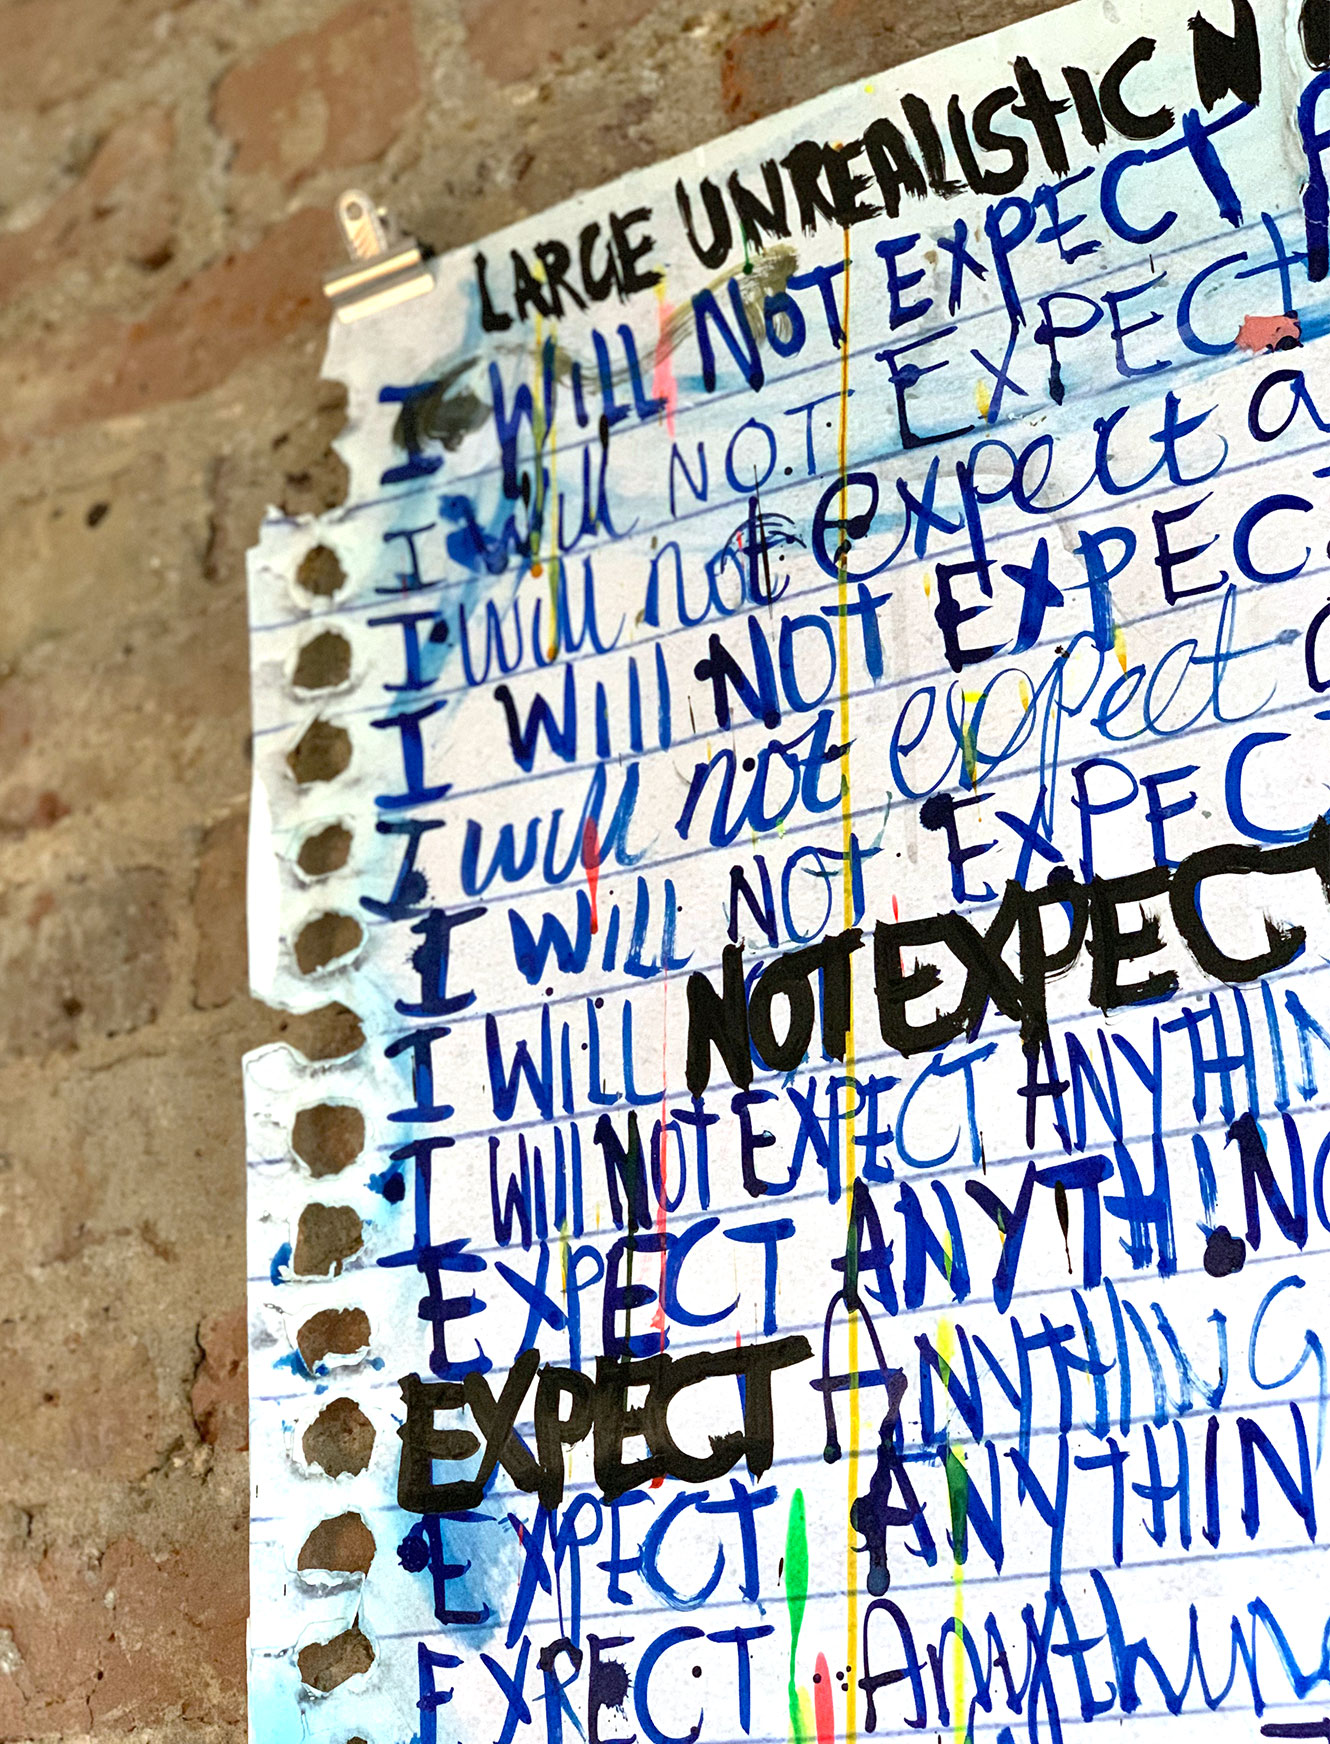 LARGE UNREALISTIC N
I WILL NOT EXPECT
I Will NOT EXPECT
I will not expect a
I Will NOT EXPEC
I will not expect
I WILL NOT EXPEC
I WILL NOT EXPECT
I Will NOT EXPECT ANYTHIN
EXPECT ANYTHING
EXPECT ANYTHING
EXPECT ANYTHIN
EXPECT Anything